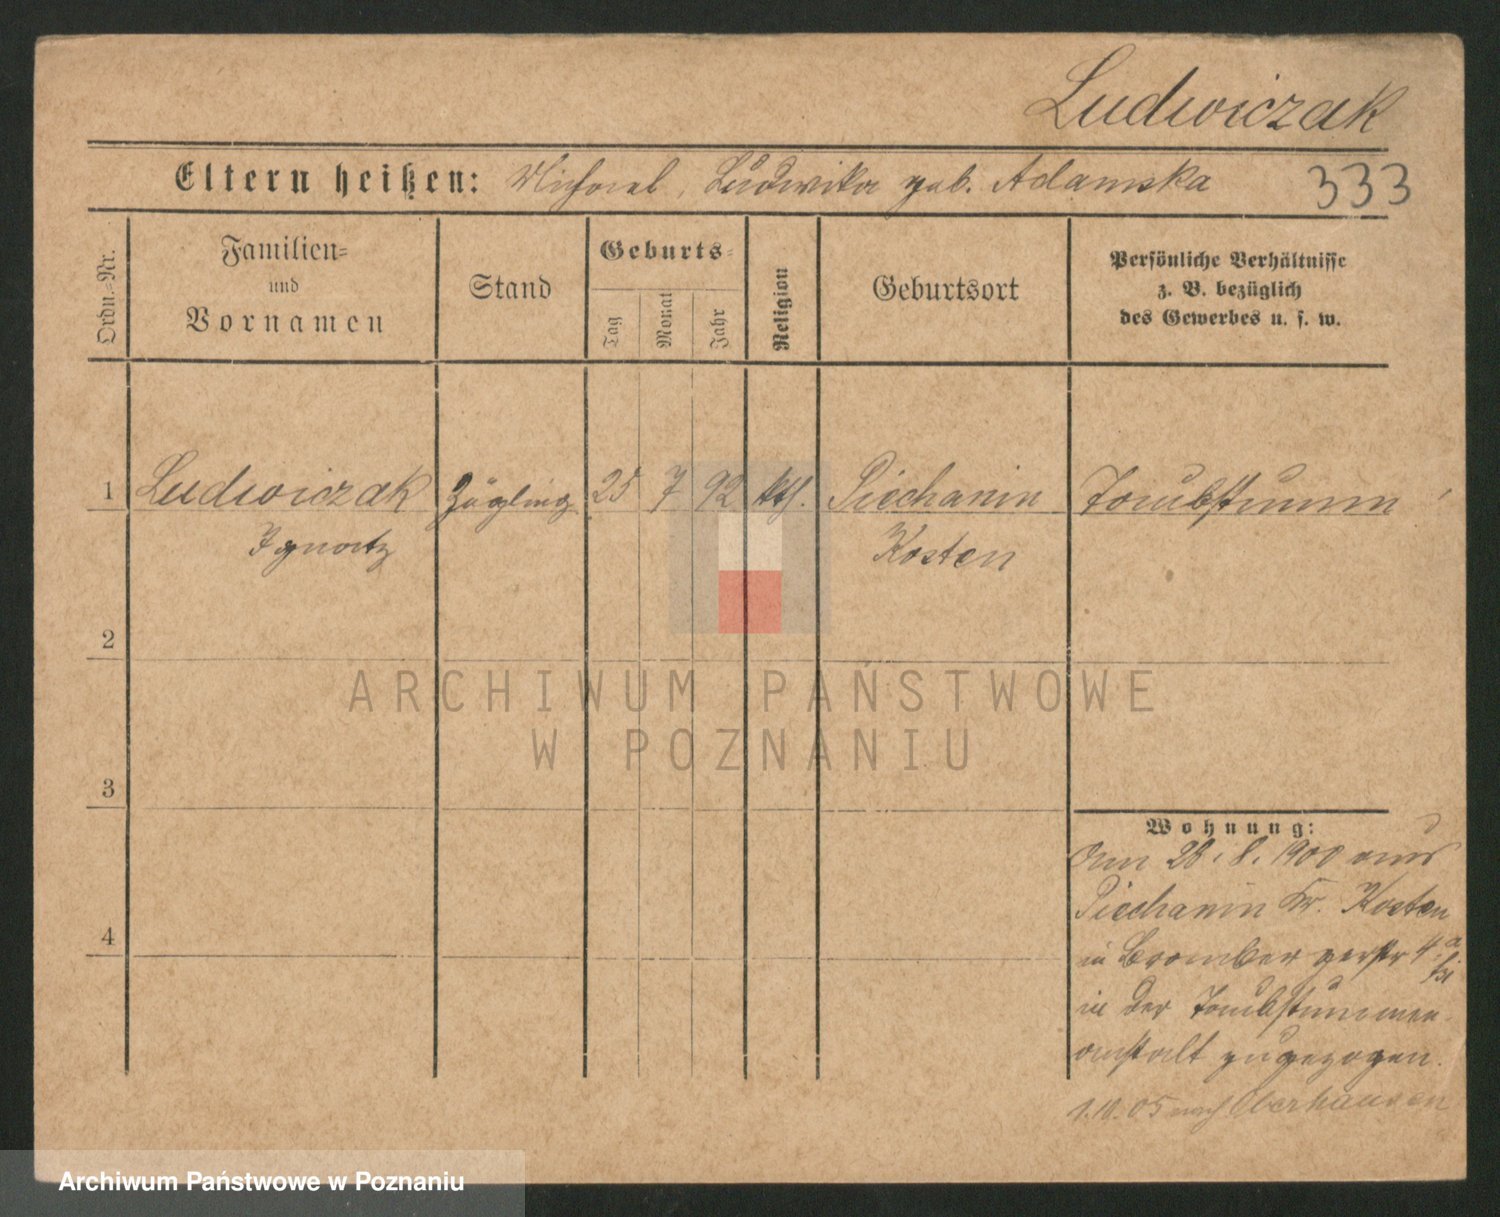 Ludwiczak
Eltern heißen: Michael, Ludwika geb. Adamska 333
Ordn.=Nr.
Familien=
und
Vornamen
Stand
Geburts=
Tag
Monat
Jahr
Religion
Geburtsort
Persönliche Verhältnisse
z. B. bezüglich
des Gewerbes u. s. w.
1 Ludwiczak Zögling 25 7 92 kth. Piechanin Taubstumm
Ignatz Kosten
2
ARCHIWUM PAŃSTWOWE
W POZNANIU
3
Wohnung:
28. 8. 1900 aus
Piechanin Kr. Kosten
in Brombergerstr 4a
in der Taubstummen
anstalt zugezogen.
4
1.10.05 nach Oberhausen
Archiwum Państwowe w Poznaniu